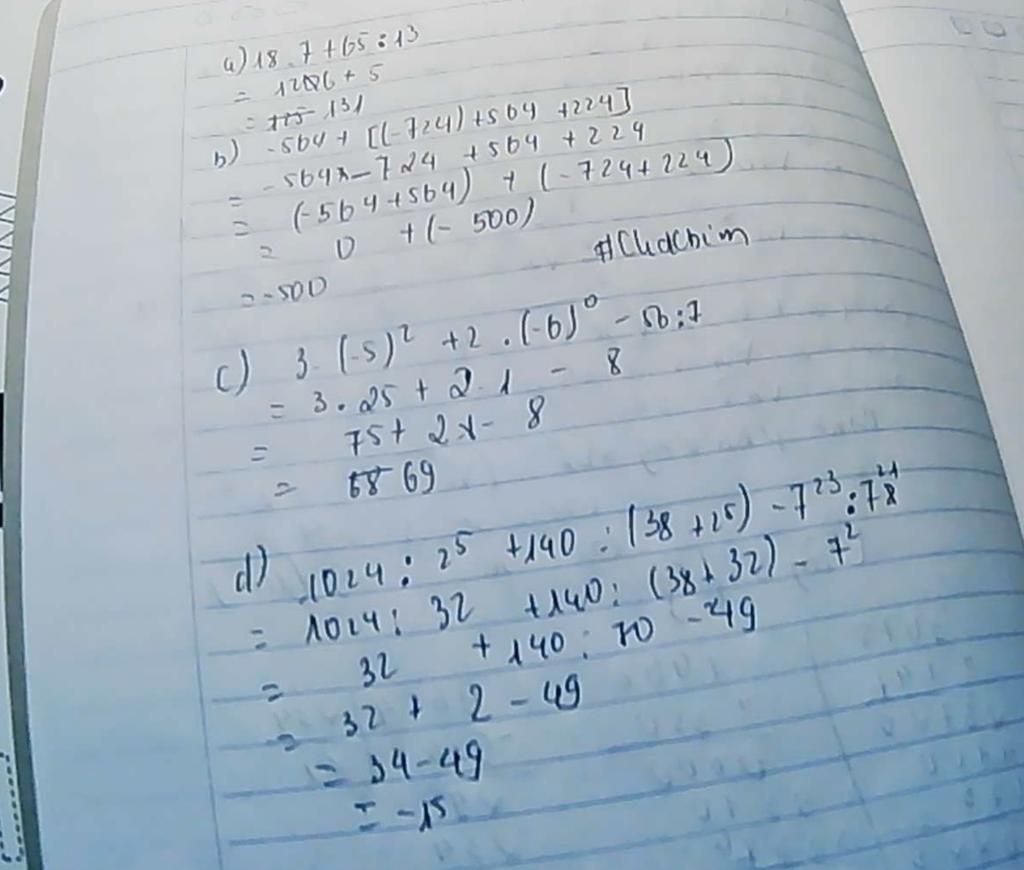 a) 18.7 + 65 : 13
= 126 + 5
= 131
b) -564 + [(-724) + 564 + 224]
= -564 - 724 + 564 + 224
= (-564 + 564) + (-724 + 224)
= 0 + (-500)
= -500
#Chachim
c) 3.(-5)² + 2.(-6)⁰ - 56:7
= 3.25 + 2.1 - 8
= 75 + 2 - 8
= 69
d) 1024 : 2⁵ + 140 : (38 + 2⁵) - 7²³ : 7²¹
= 1024 : 32 + 140 : (38 + 32) - 7²
= 32 + 140 : 70 - 49
= 32 + 2 - 49
= 34 - 49
= -15